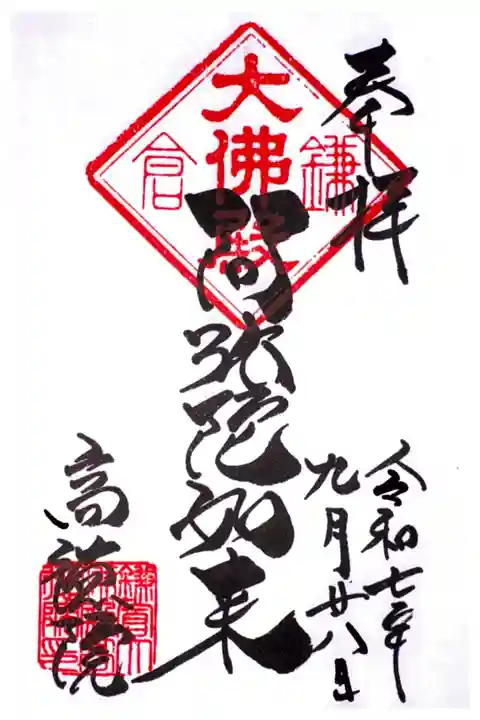 奉拝
令和七年
九月廿八日
鎌倉
大佛殿
阿弥陀如来
高徳院